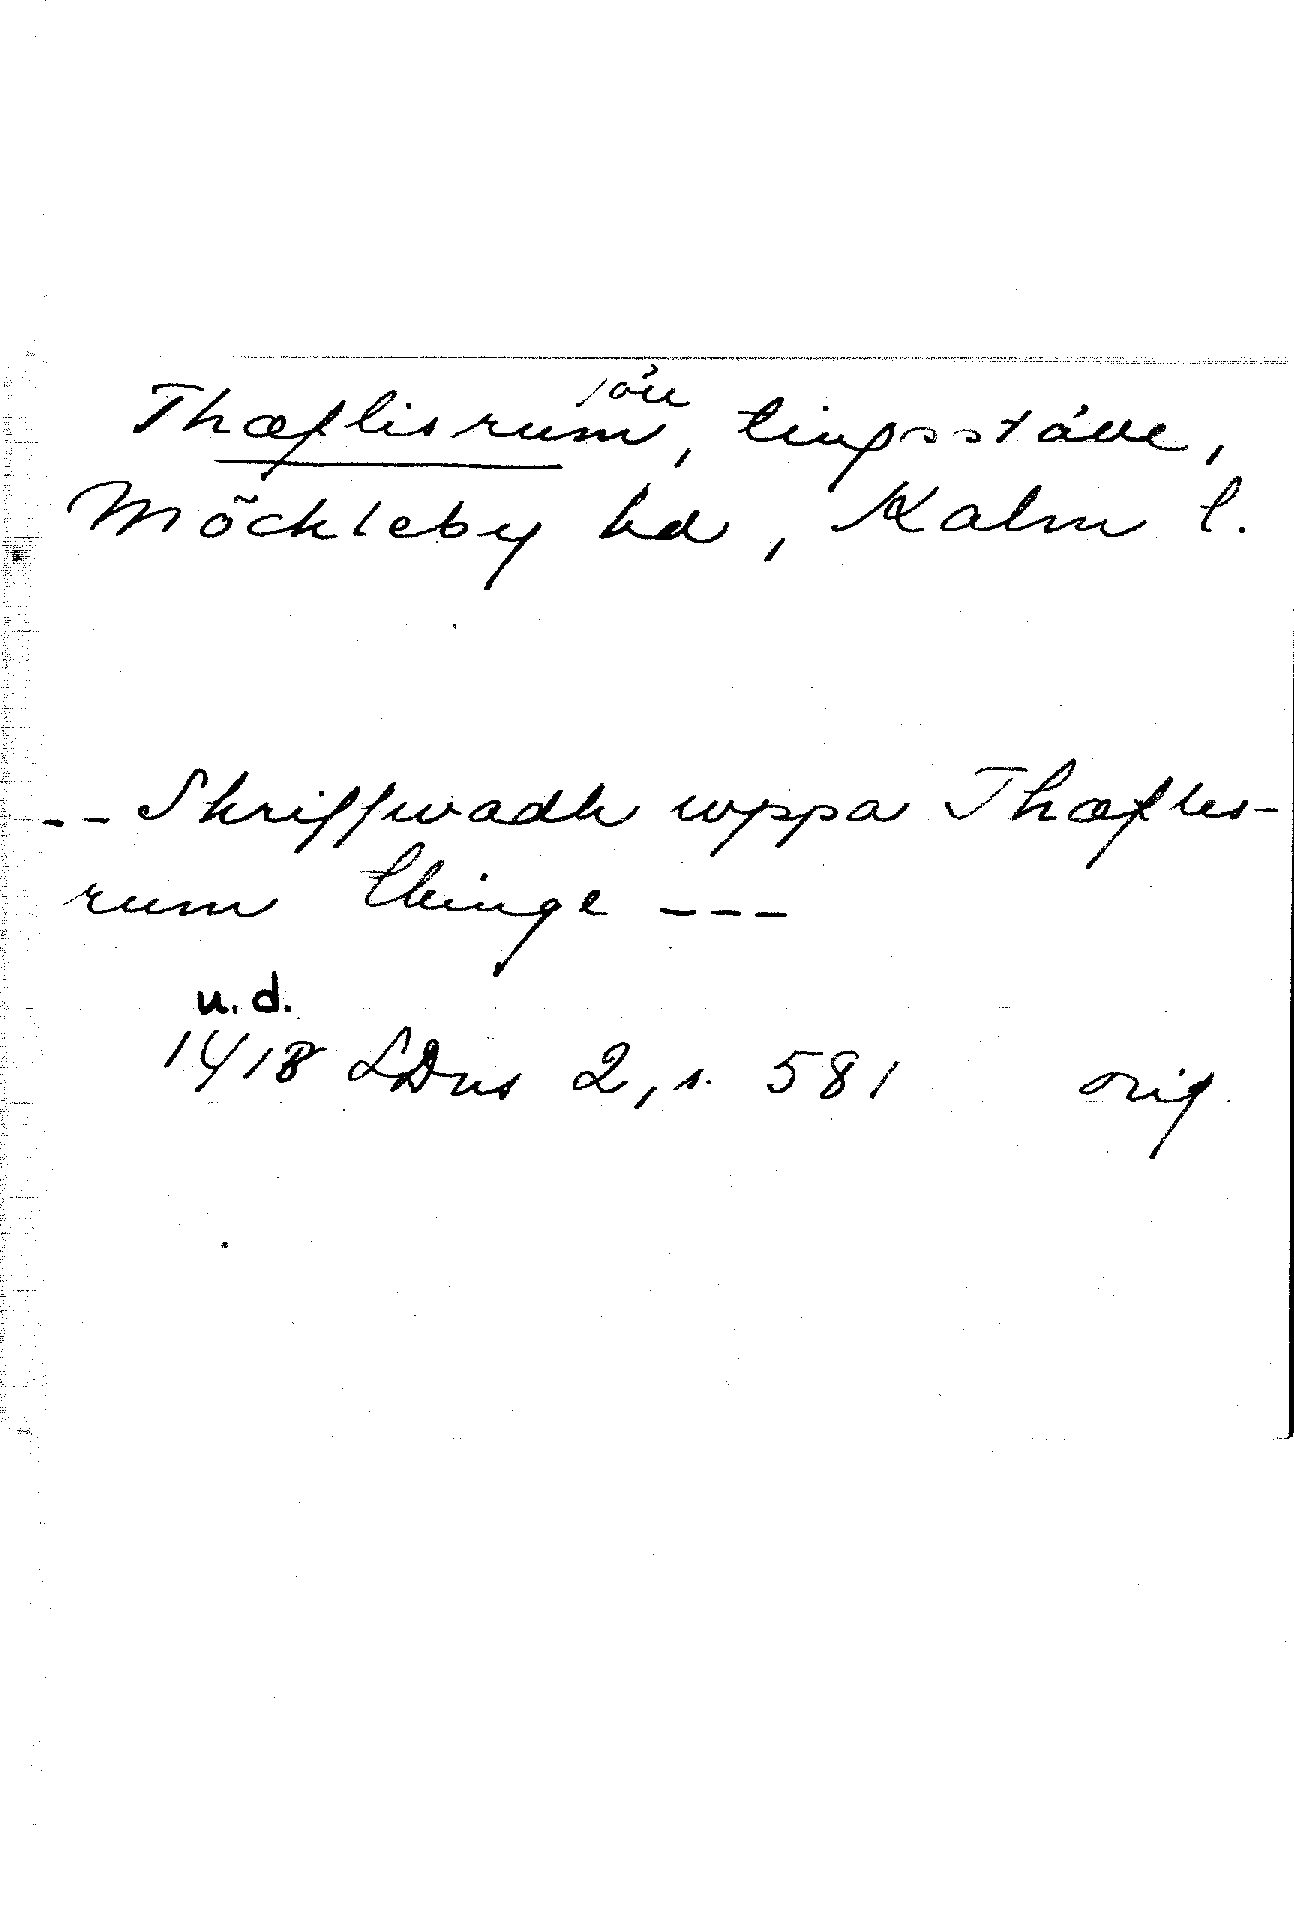 Thæflisrum, tingsställe,
Möckleby hd, Kalm l.
-- Skriffwadh uppa Thæfles-
rum thinge ---
u.d.
1418 SDns 2, s. 581 orig